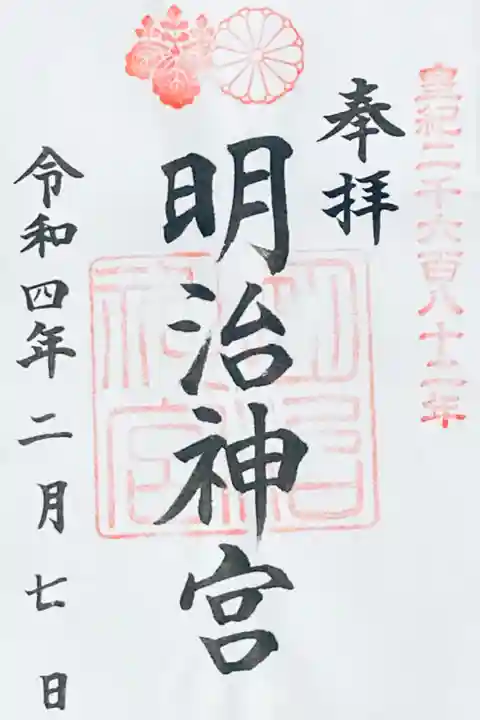 皇紀二千六百八十二年
奉拝
明治神宮
明治
神宮
令和四年二月七日